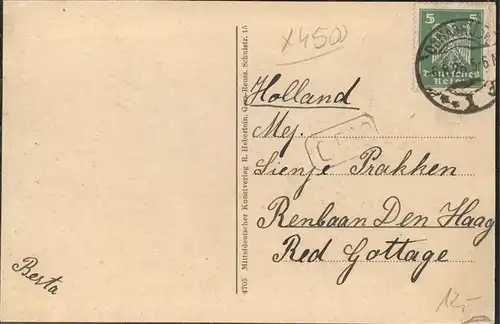 x4500
5 5
Deutsches
Reich
Holland
Mej.
Sientje Prakken
Renbaan Den Haag
Red Gottage
Besta
12,-
4705 Mitteldeutscher Kunstverlag R. Heberlein, Gera-Reuss, Schulstr. 15